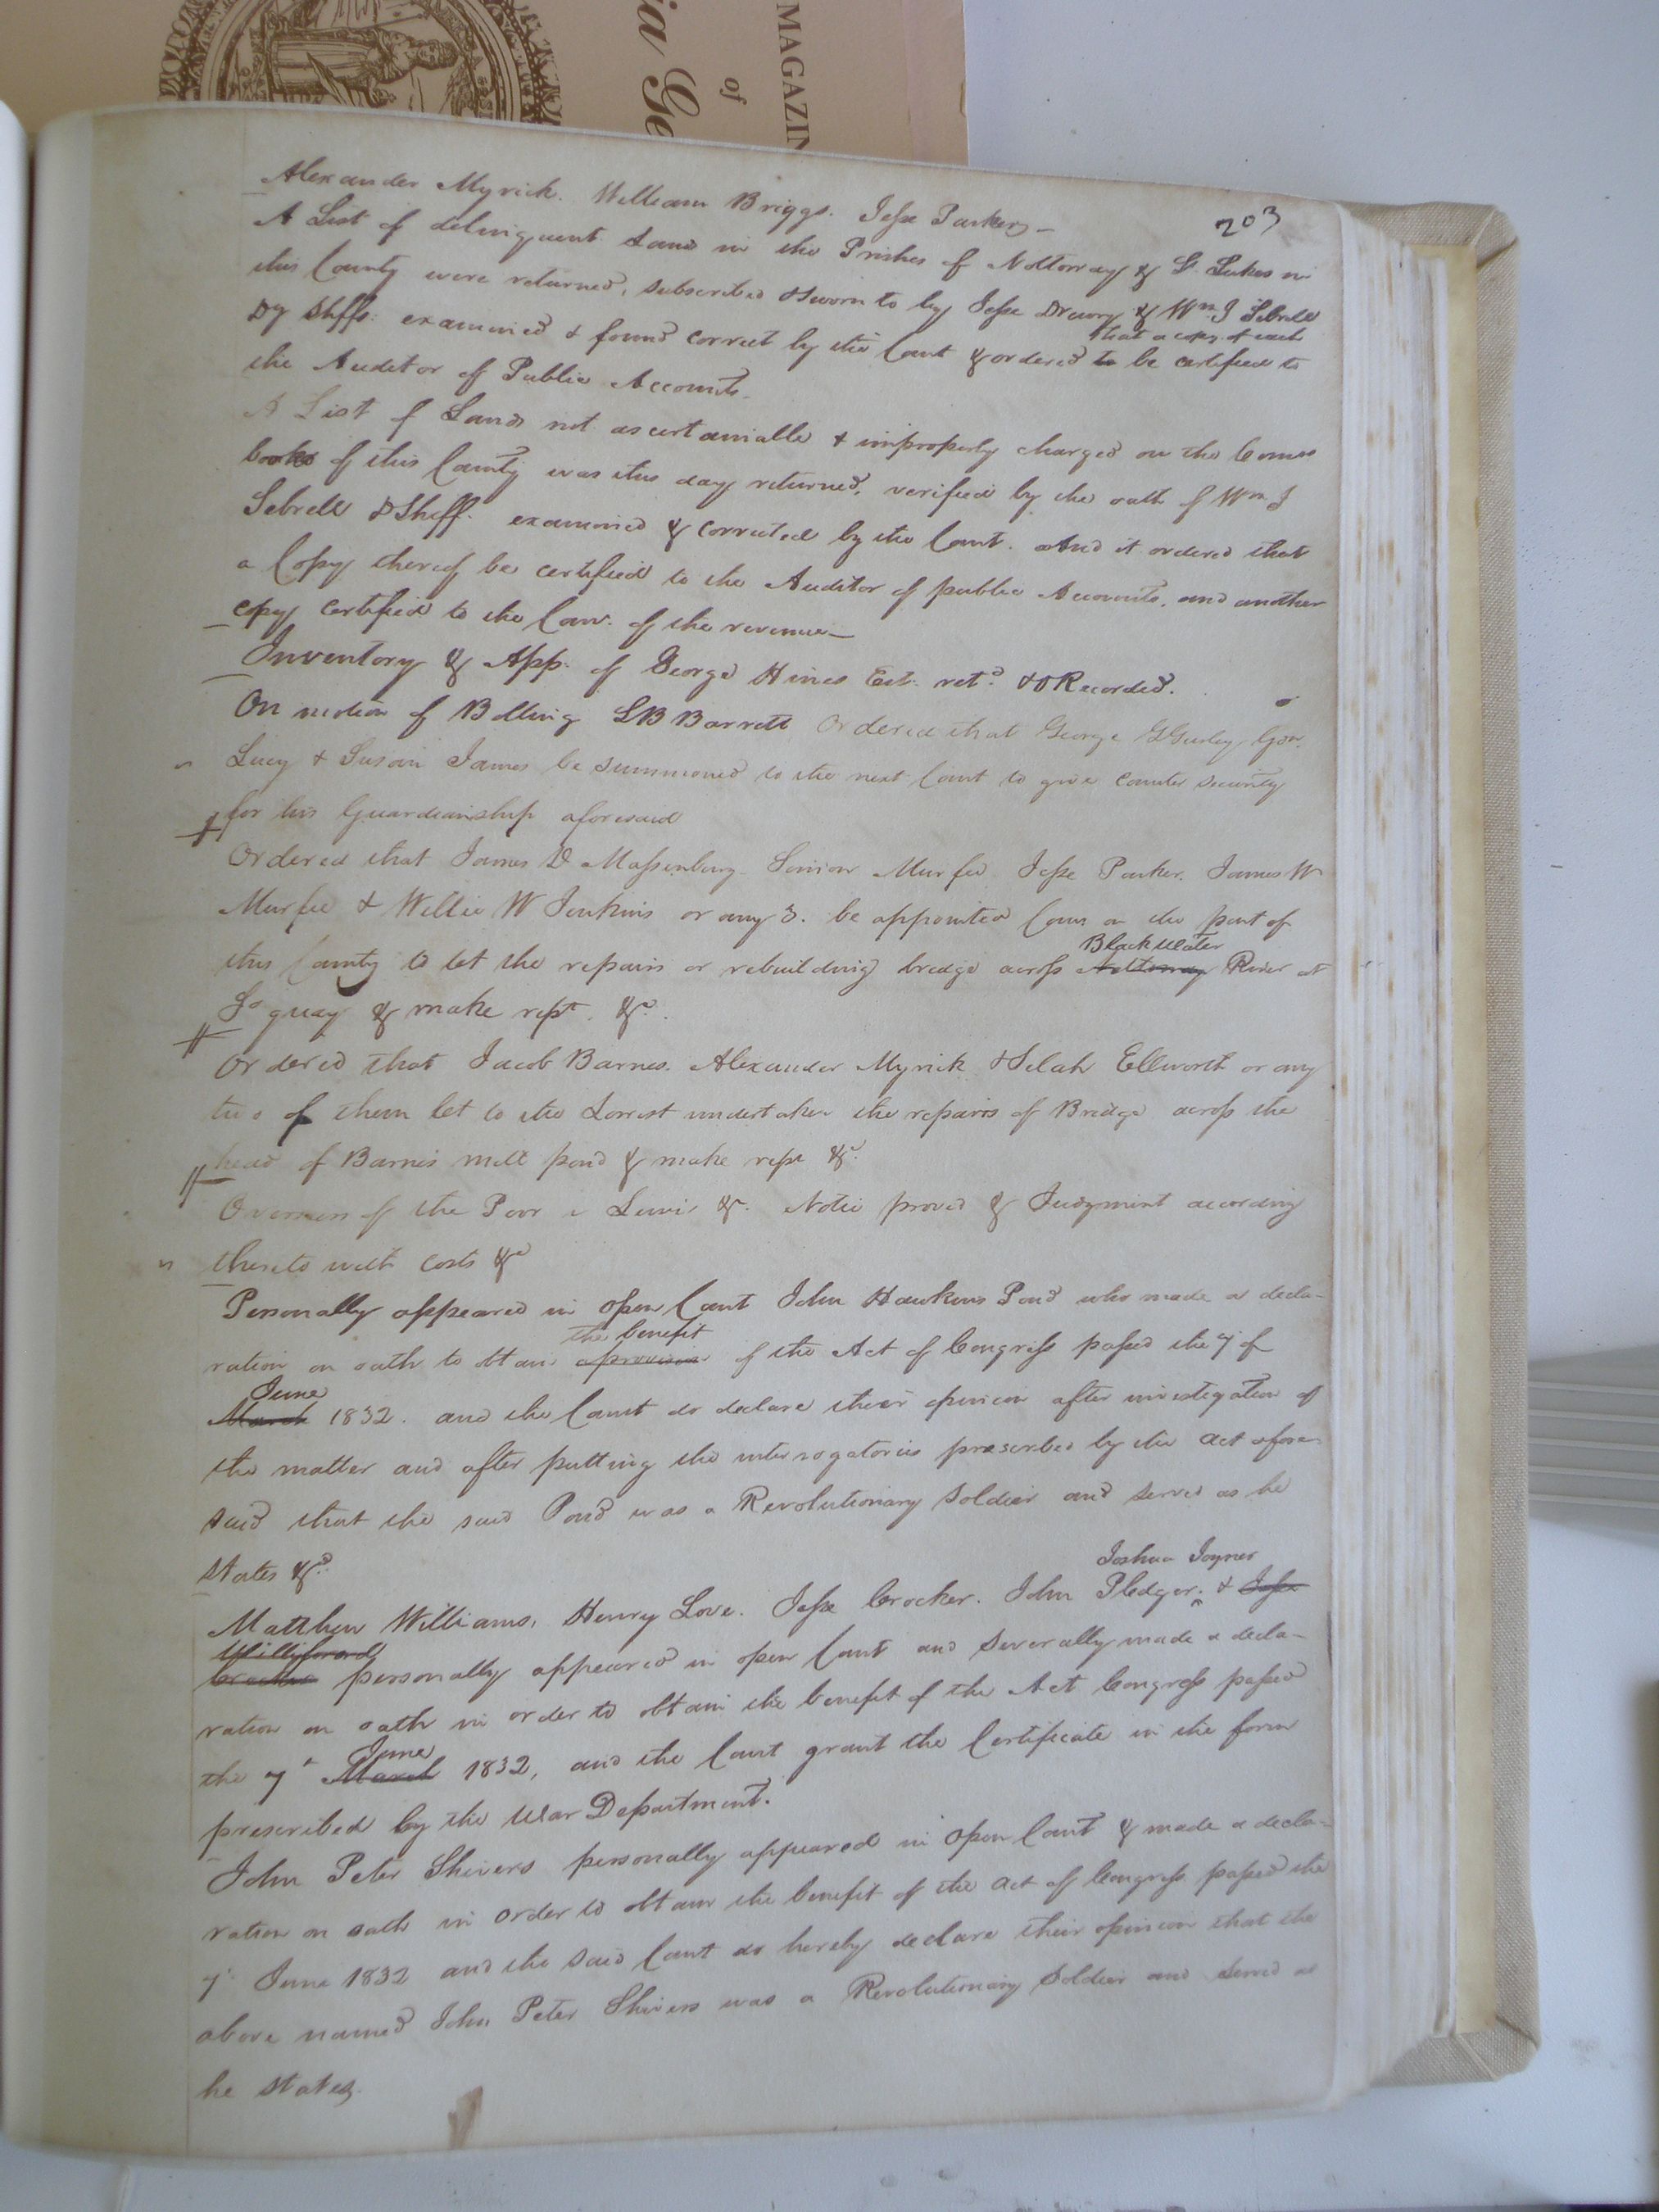 MAGAZIN
of
ia Ge
203
Alexander Myrick. William Briggs. Jesse Parker
A List of delinquent Land in the Prishes of Nottoway & St. Lukes in
this County were returned, subscribed & sworn to by Jesse Drewry & Wm. J Sebrell
that a copy of each
Dy Shffs. examined & found correct by the Court & ordered to be certified to
the Auditor of Public Accounts.
A List of Lands not ascertainable & improperly charged on the Comrs
books of this County was this day returned, verified by the oath of Wm J
Sebrell DShff. examined & corrected by the Court. And it ordered that
a Copy thereof be certified to the Auditor of public Accounts, and another
copy certified to the Com. of the revenue
Inventory & App. of George Hines Est. retd. & ORecorded.
On motion of Bolling LB Barrett Ordered that George Gurley Gdn.
Lucy & Susan James be summoned to the next Court to give counter security
for his Guardianship aforesaid
Ordered that James D Massenburg Simon Murfee Jesse Parker. James W
Murfee & Willie W Jenkins or any 3. be appointed Com on the part of
Blackwater
this County to let the repairs or rebuilding bridge across Nottoway River at
So quay & make rept. &c.
Ordered that Jacob Barnes. Alexander Myrick & Selah Ellworth or any
two of them let to the Lowest undertaker the repairs of Bridge across the
head of Barnes mill pond & make rept &c.
Overseers of the Poor v Lewis &c. Notice proved & Judgment according
thereto with costs &c
Personally appeared in open Court John Hawkins Pond who made a decla-
the benefit
ration on oath to obtain of the Act of Congress passed the 7 of
June
March 1832. and the Court do declare their opinion after investigation of
the matter and after putting the interrogatories prescribed by the act afore-
said that the said Pond was a Revolutionary Soldier and served as he
states &c.
Joshua Joyner
Matthew Williams, Henry Love. Jesse Crocker. John Pledger. & Jesse
Williford
Crocker personally appeared in open Court and Severally made a decla-
ration on oath in order to obtain the benefit of the Act Congress passed
June
the 7th March 1832, and the Court grant the Certificate in the form
prescribed by the War Department.
John Peter Shivers personally appeared in Open Court & made a decla-
ration on oath in order to obtain the benefit of the act of Congress passed the
7th June 1832 and the said Court do hereby declare their opinion that the
above named John Peter Shivers was a Revolutionary Soldier and served as
he states.